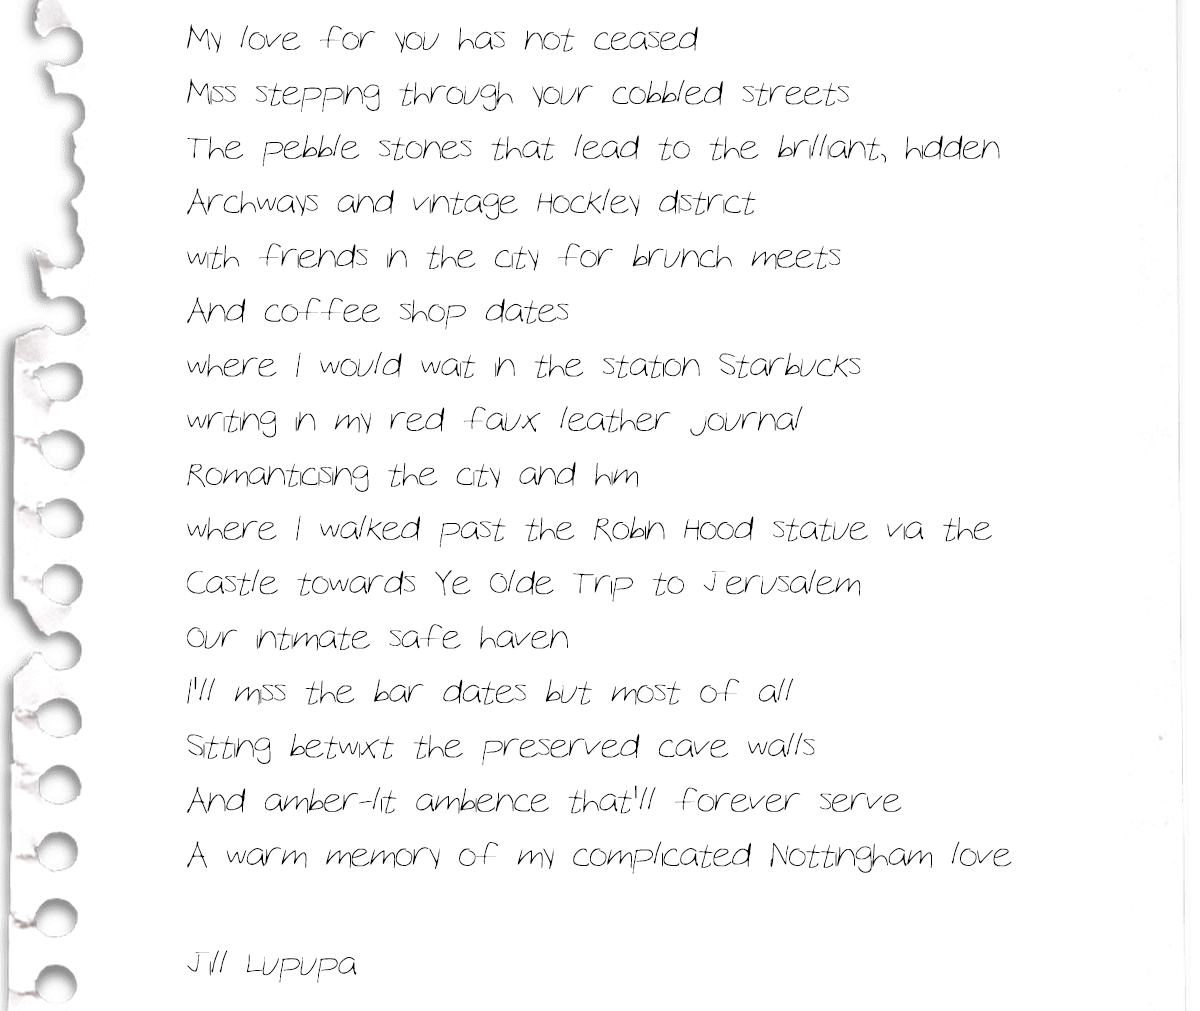 My love for you has not ceased
Miss stepping through your cobbled streets
The pebble stones that lead to the brilliant, hidden
Archways and vintage Hockley district
with friends in the city for brunch meets
And coffee shop dates
where I would wait in the station Starbucks
writing in my red faux leather journal
Romanticising the city and him
where I walked past the Robin Hood statue via the
Castle towards Ye Olde Trip to Jerusalem
Our intimate safe haven
I'll miss the bar dates but most of all
Sitting betwixt the preserved cave walls
And amber-lit ambience that'll forever serve
A warm memory of my complicated Nottingham love
Jill Lupupa